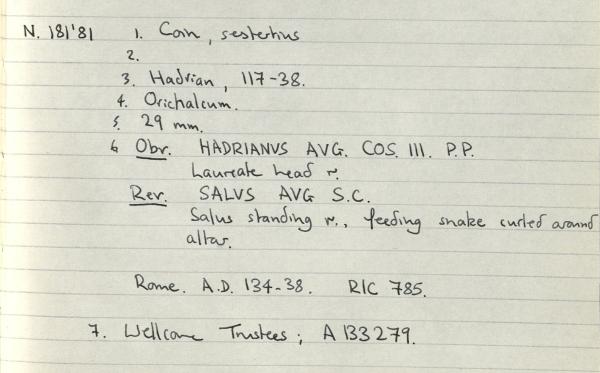 N. 181'81 1. Coin, sestertius
2.
3. Hadrian, 117-38.
4. Orichalcum.
5. 29 mm.
6 Obv. HADRIANVS AVG. COS. III. P.P.
Laureate head r.
Rev. SALVS AVG S.C.
Salus standing r., feeding snake curled around
altar.
Rome. A.D. 134-38. RIC 785.
7. Wellcome Trustees; A 133279.